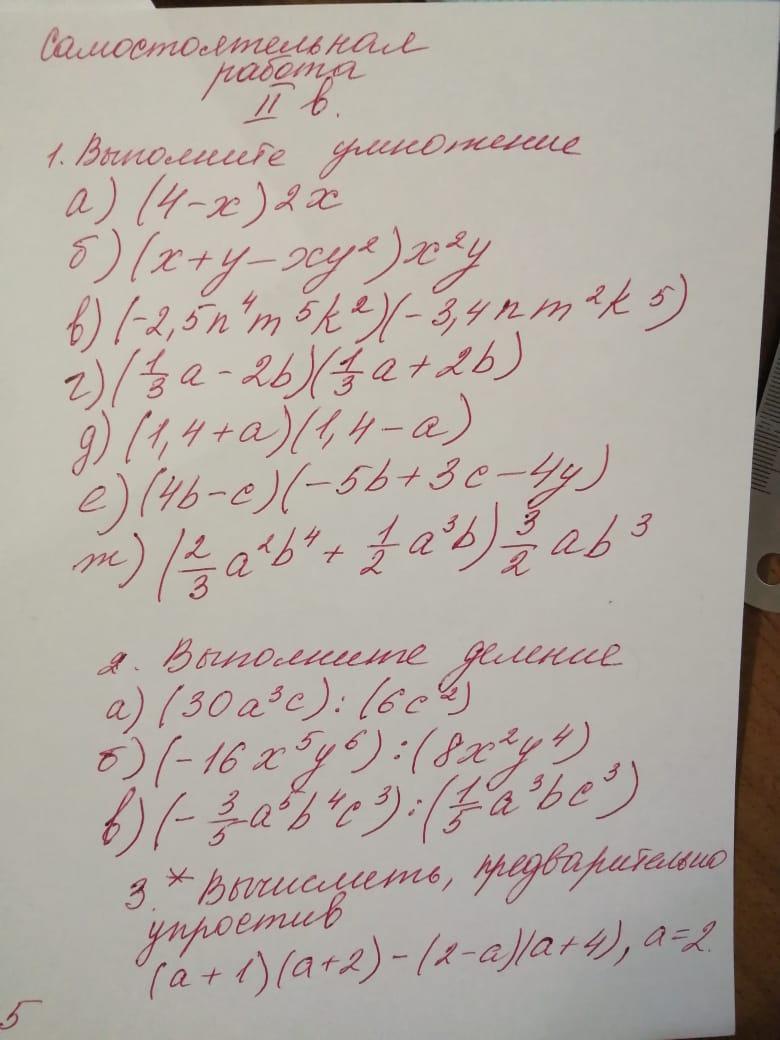 Самостоятельная
работа
II в.
1. Выполните умножение
а) (4-x)2x
б) (x+y-xy²)x²y
в) (-2,5n⁴m⁵k²)(-3,4nm²k⁵)
г) (1/3 a - 2b)(1/3 a + 2b)
д) (1,4+a)(1,4-a)
е) (4b-c)(-5b+3c-4y)
ж) (2/3 a²b⁴ + 1/2 a³b) 3/2 ab³
2. Выполните деление
а) (30a³c):(6c²)
б) (-16x⁵y⁶):(8x²y⁴)
в) (-3/5 a⁵b⁴c³):(1/5 a³bc³)
3.* Вычислить, предварительно
упростив
(a+1)(a+2)-(2-a)(a+4), a=2.
5